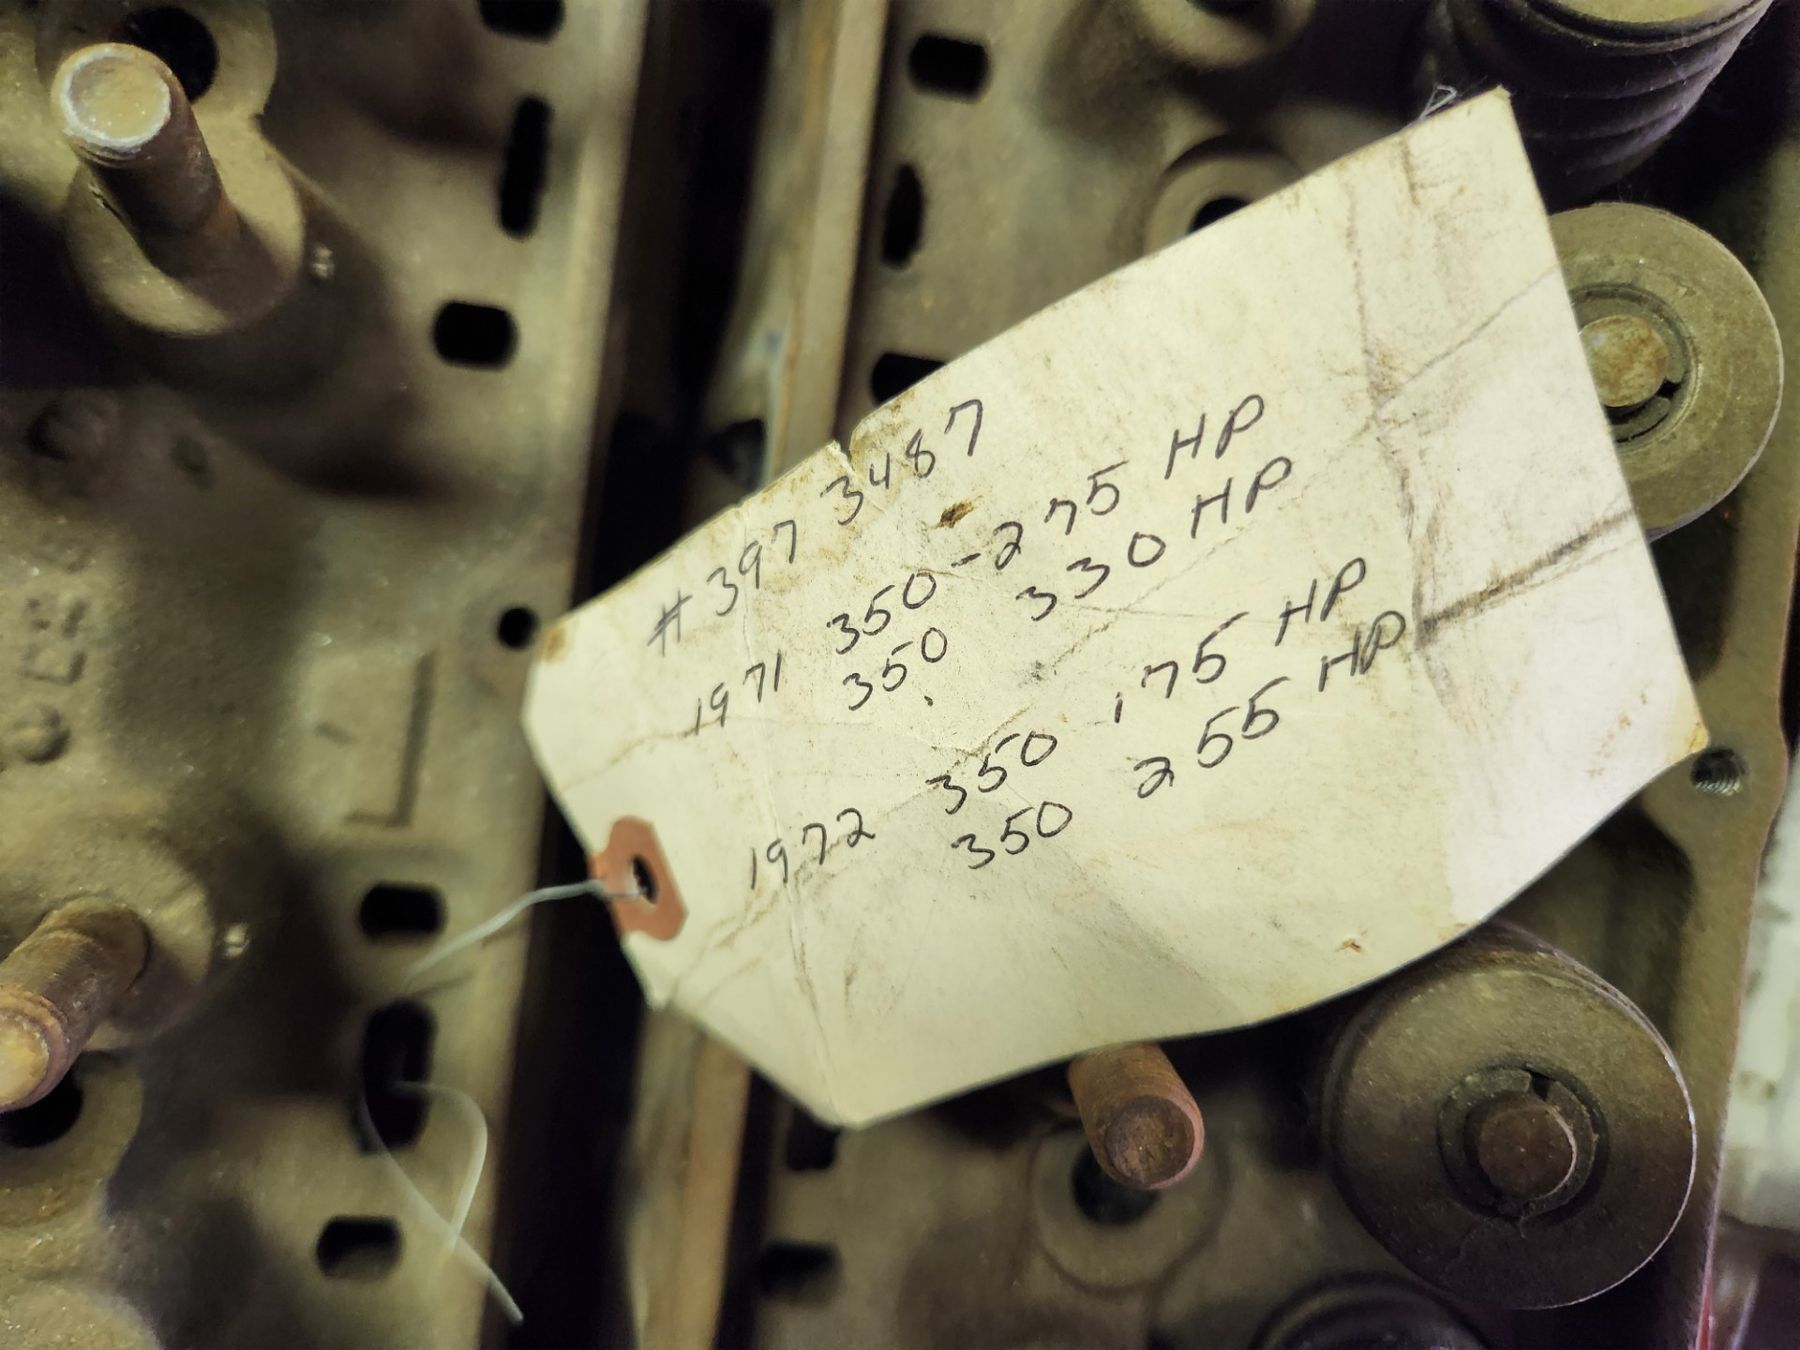 #397 3487
1971 350-275 HP
350 330 HP
1972 350 175 HP
350 255 HP